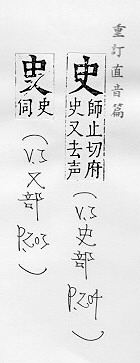 重訂直音篇
史 師止切府
史又去声
(V.5 史部 P.204)
㕜 史
(V.5 又部 P.203)